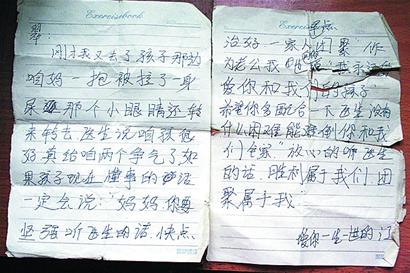 Exercisebook
翠:
刚才我又去了孩子那边
咱妈一抱被拉了一身
尿 那个小眼睛还转
来转去 医生说咱孩子很
好真给咱两个争气了如
果孩子现在懂事的话
一定会说:"妈妈你要
坚强听医生的话.快点
Exercisebook
早点
治好一家人团聚"作
为老公我
爱你和我们的孩子
希望你多配合一下医生没有
什么困难能难倒你和我
们全家"放心的听医生
的话.胜利属于我们 团
聚属于我
爱你一生一世的江